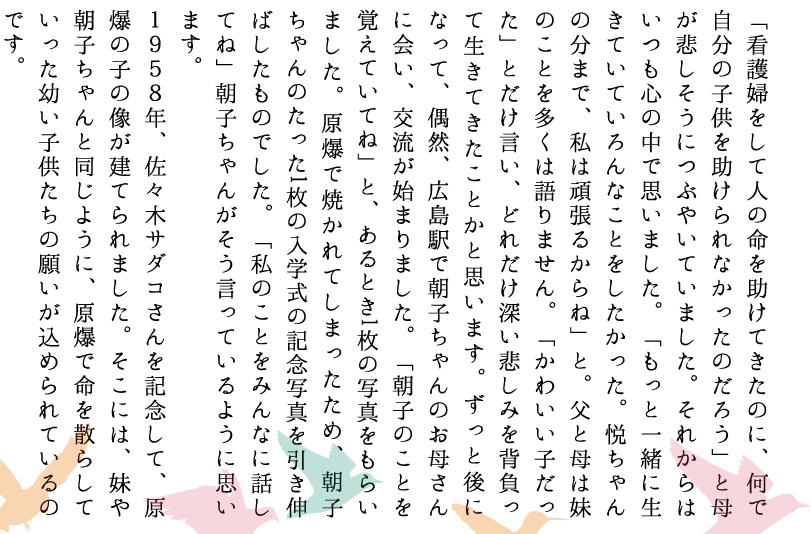 「看護婦をして人の命を助けてきたのに、何で
自分の子供を助けられなかったのだろう」と母
が悲しそうにつぶやいていました。それからは
いつも心の中で思いました。「もっと一緒に生
きていていろんなことをしたかった。悦ちゃん
の分まで、私は頑張るからね」と。父と母は妹
のことを多くは語りません。「かわいい子だっ
た」とだけ言い、どれだけ深い悲しみを背負っ
て生きてきたことかと思います。ずっと後に
なって、偶然、広島駅で朝子ちゃんのお母さん
に会い、交流が始まりました。「朝子のことを
覚えていてね」と、あるとき1枚の写真をもらい
ました。原爆で焼かれてしまったため、朝子
ちゃんのたった1枚の入学式の記念写真を引き伸
ばしたものでした。「私のことをみんなに話し
てね」朝子ちゃんがそう言っているように思い
ます。
1958年、佐々木サダコさんを記念して、原
爆の子の像が建てられました。そこには、妹や
朝子ちゃんと同じように、原爆で命を散らして
いった幼い子供たちの願いが込められているの
です。